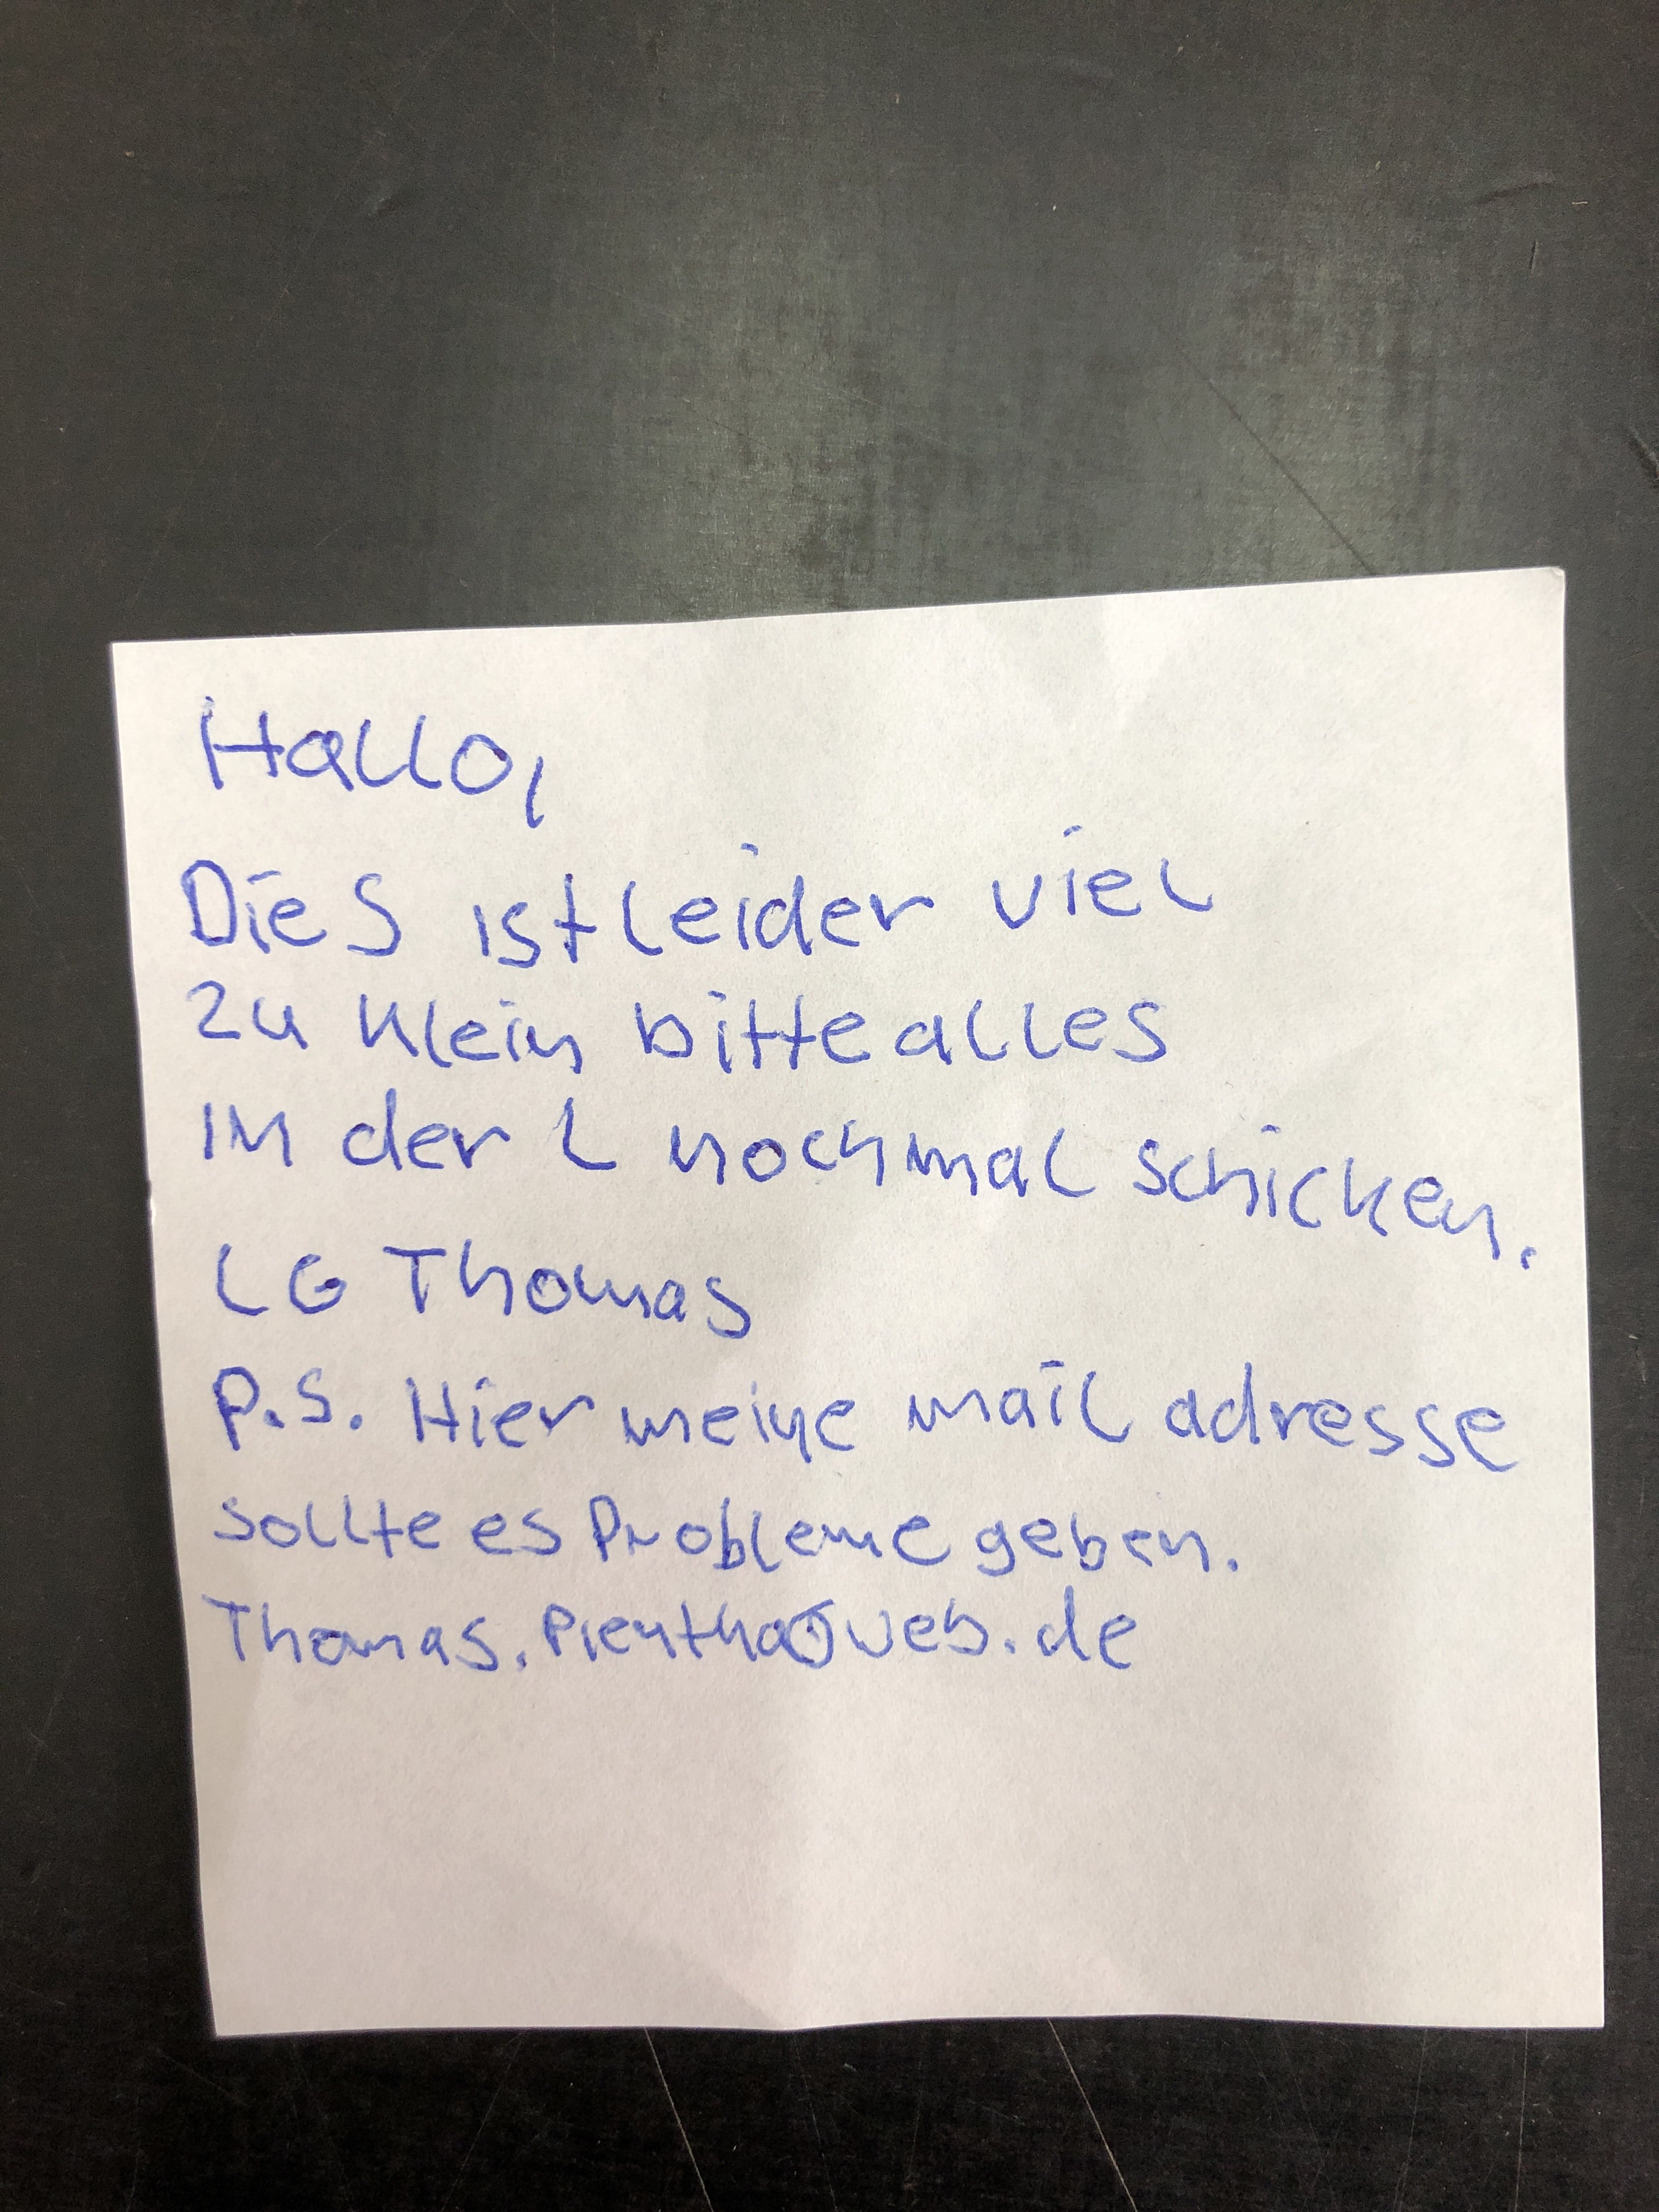 Hallo,
Dies ist leider viel
zu klein bitte alles
in der L nochmal schicken.
LG Thomas
P.S. Hier meine mail adresse
sollte es Probleme geben.